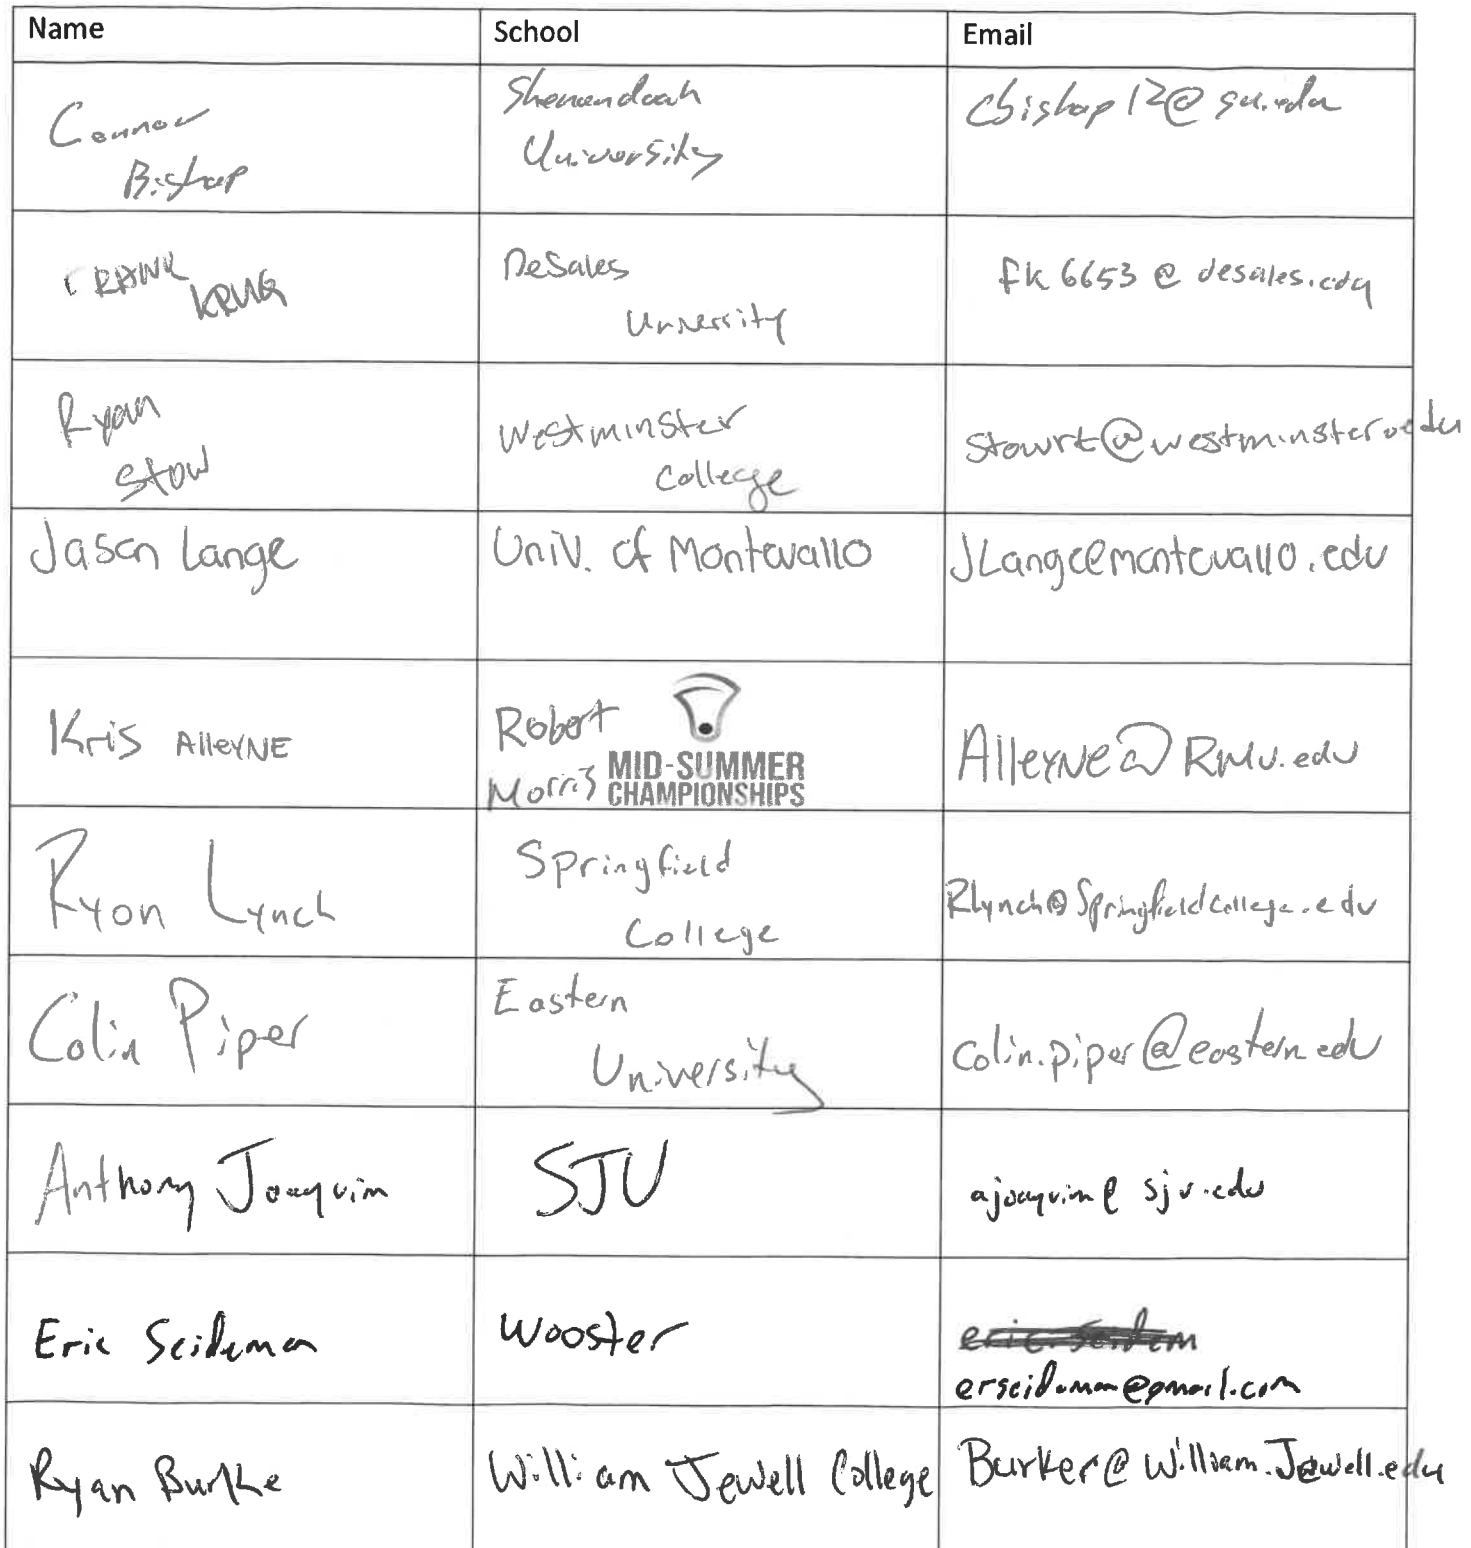 Name School Email
Connor Bishop
Shenandoah University
cbishop12@su.edu
FRANK KRUG
DeSales University
fk6653@desales.edu
Ryan Stow
Westminster College
stowrt@westminster.edu
Jason Lange
Univ. of Montevallo
JLange@montevallo.edu
Kris AlleyNE
Robert Morris
MID-SUMMER
CHAMPIONSHIPS
AlleyNe@RMU.edu
Ryon Lynch
Springfield College
Rlynch@Springfieldcollege.edu
Colin Piper
Eastern University
colin.piper@eastern.edu
Anthony Joaquim
SJU
ajoaquim@sju.edu
Eric Seideman
Wooster
erseideman@gmail.com
Ryan Burke
William Jewell College
Burker@William.Jewell.edu